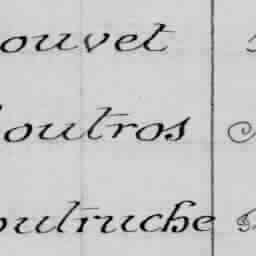 ouvet
outros
outruche